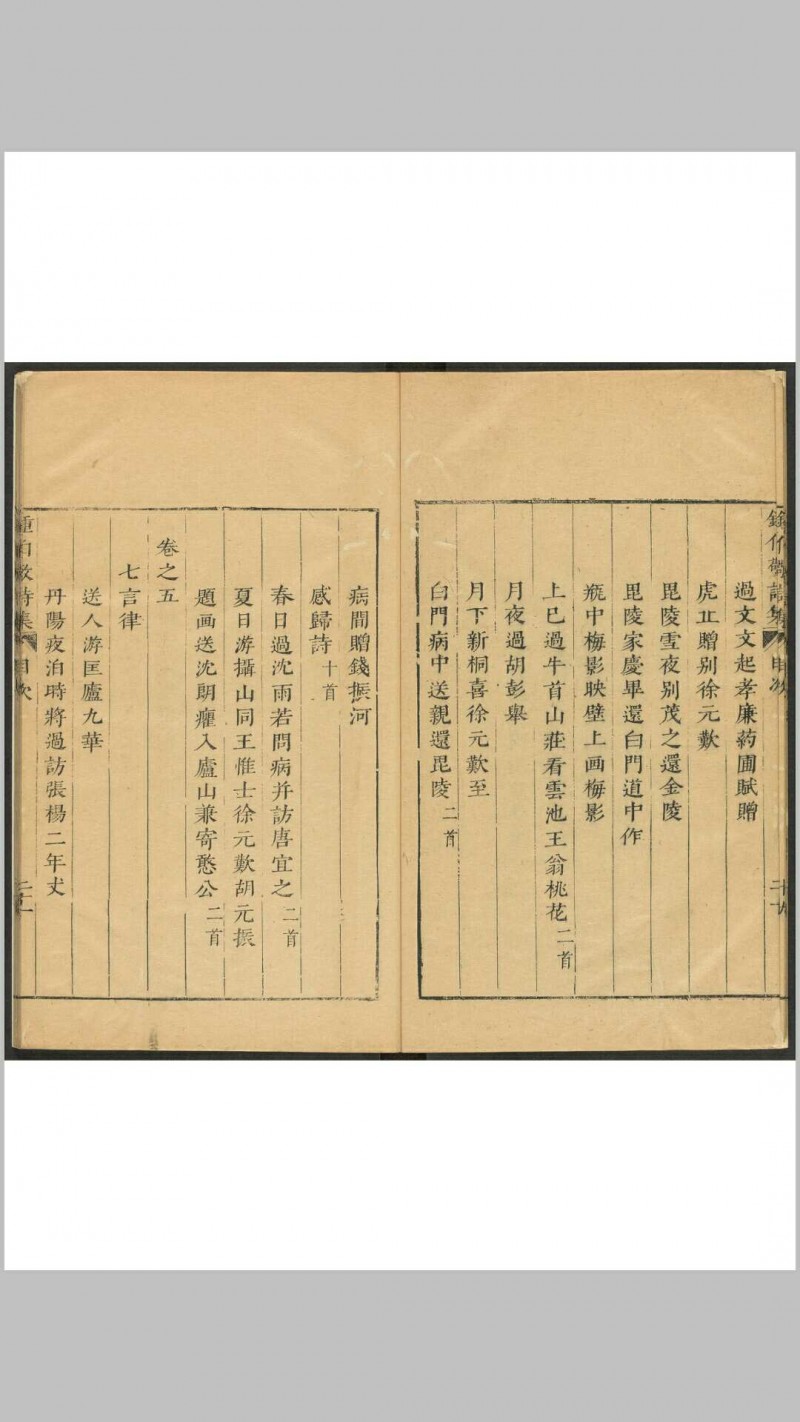 過文文起孝廉葯圃賦贈
虎丠贈别徐元歎
毘陵雪夜别茂之還金陵
毘陵家慶畢還白門道中作
瓶中梅影映壁上画梅影
上巳過牛首山莊看雲池王翁桃花二首
月夜過胡彭舉
月下新桐喜徐元歎至
白門病中送親還毘陵二首
病間贈錢振河
感歸詩十首
春日過沈雨若問病并訪唐宜之二首
夏日游攝山同王惟士徐元歎胡元振
題画送沈朗癯入廬山兼寄憨公二首
卷之五
七言律
送人游匡廬九華
丹陽夜泊時將過訪張楊二年丈
鍾伯敬詩集 目次